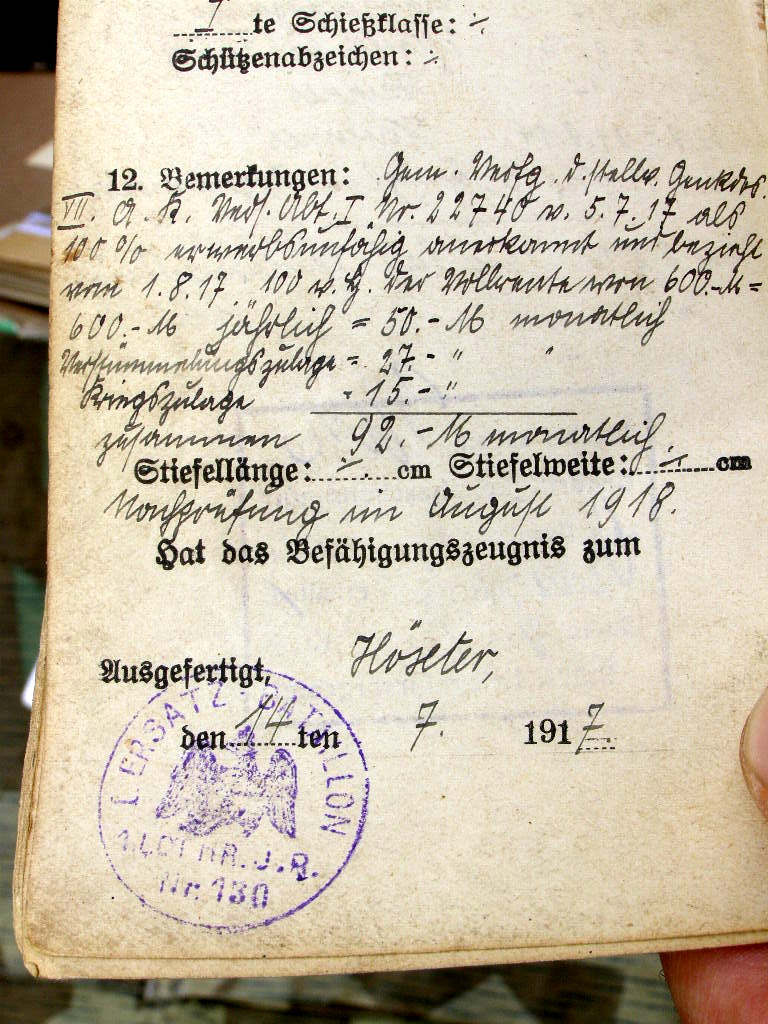 I te Schießklasse: ·/·
Schützenabzeichen: ·/·
12. Bemerkungen: Gem. Verfg. d. stellv. Genkdos.
VII. A. K. Vers. Abt. I Nr. 22740 v. 5.7.17 als
100% erwerbsunfähig anerkannt und bezieht
vom 1.8.17 100 v. H. der Vollrente von 600.-M =
600.-M jährlich = 50.-M monatlich
Verstümmelungszulage = 27.- " "
Kriegszulage = 15.- "
zusammen 92.-M monatlich.
Stiefellänge: ·/· cm Stiefelweite: ·/· cm
Nachprüfung im August 1918.
Hat das Befähigungszeugnis zum
Ausgefertigt, Höxter,
den 14 ten 7. 1917.
I. ERSATZ-BATAILLON
1. LOTHR. J. R.
Nr. 130